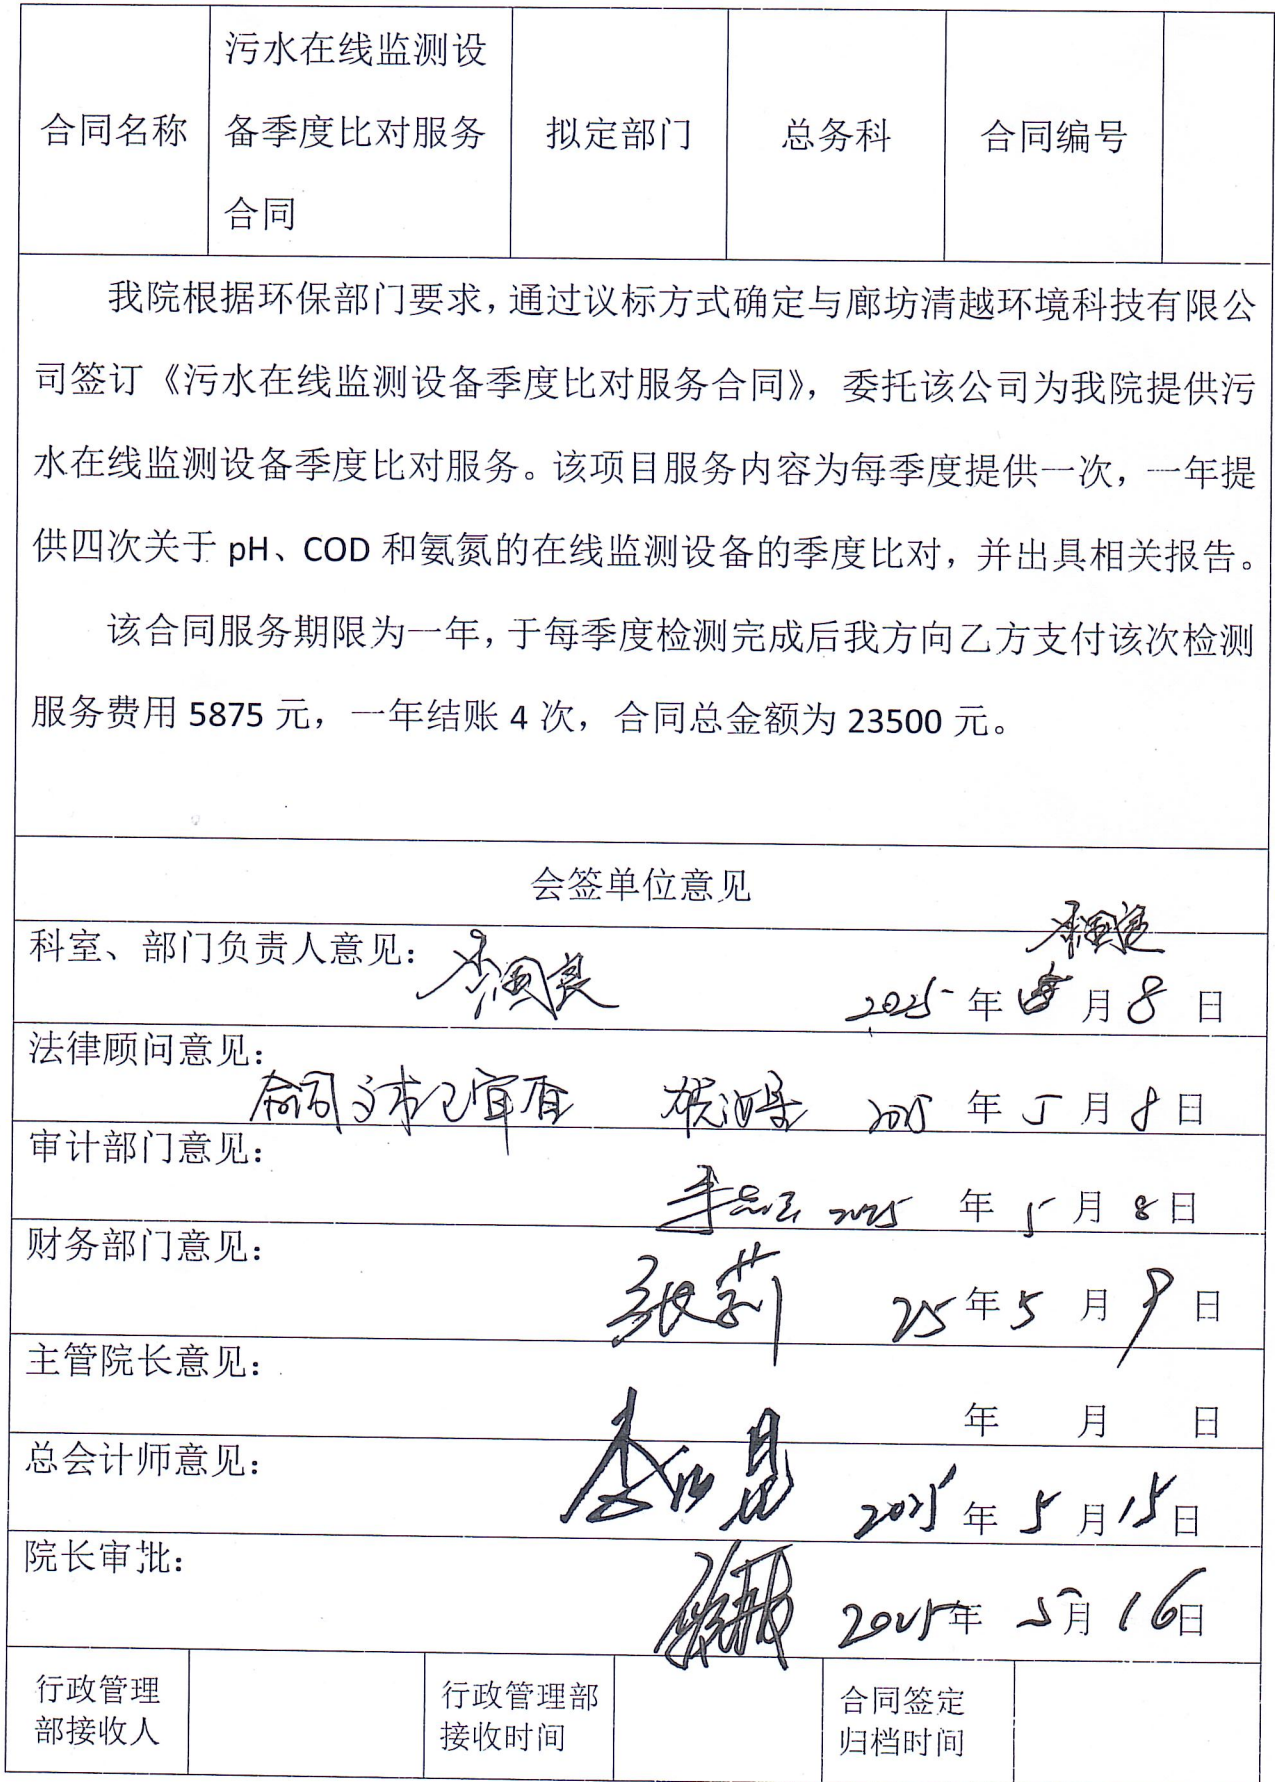 合同名称
污水在线监测设
备季度比对服务
合同
拟定部门
总务科
合同编号
我院根据环保部门要求，通过议标方式确定与廊坊清越环境科技有限公
司签订《污水在线监测设备季度比对服务合同》，委托该公司为我院提供污
水在线监测设备季度比对服务。该项目服务内容为每季度提供一次，一年提
供四次关于 pH、COD 和氨氮的在线监测设备的季度比对，并出具相关报告。
该合同服务期限为一年，于每季度检测完成后我方向乙方支付该次检测
服务费用 5875 元，一年结账 4 次，合同总金额为 23500 元。
会签单位意见
科室、部门负责人意见：
李国良
李国良
2025 年 月 8 日
法律顾问意见：
合同文本已审查 2025 年 5 月 8 日
审计部门意见：
2025 年 5 月 8 日
财务部门意见：
张莉 25 年 5 月 9 日
主管院长意见：
年 月 日
总会计师意见：
2025 年 5 月 15 日
院长审批：
2025 年 5 月 16 日
行政管理
部接收人
行政管理部
接收时间
合同签定
归档时间